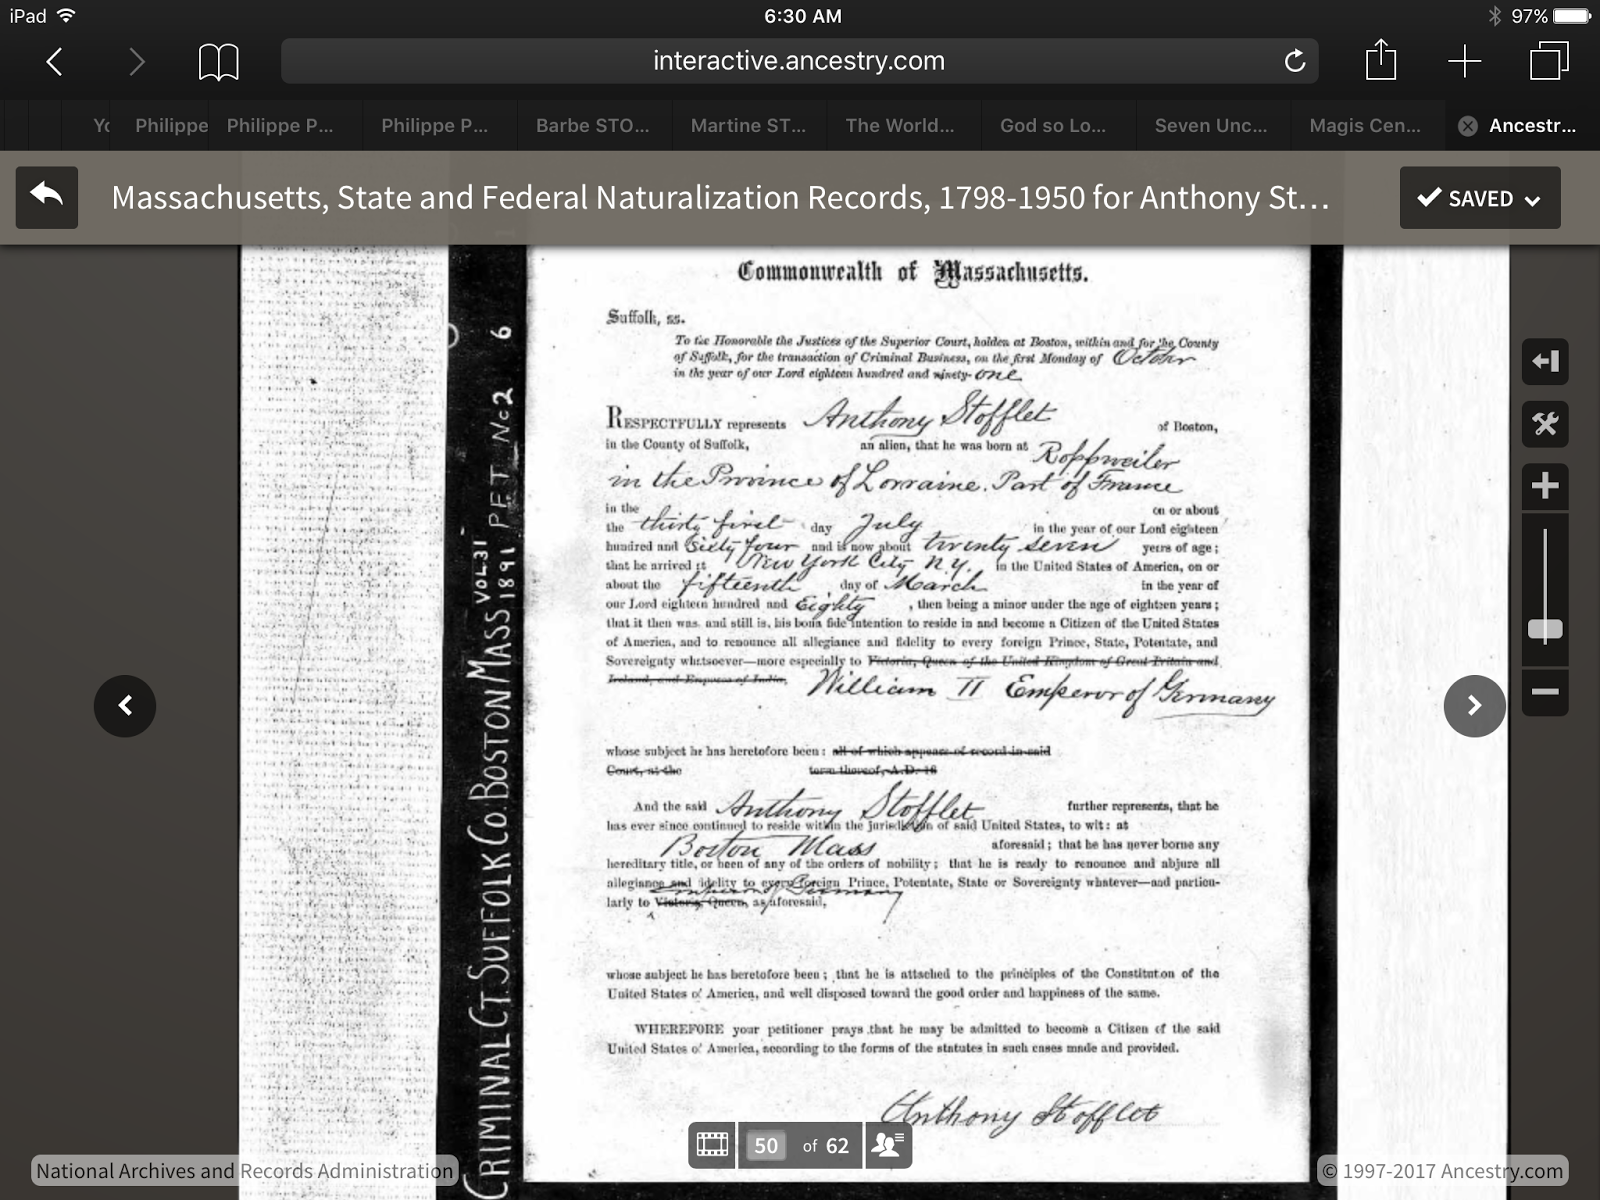 iPad
6:30 AM
97%
interactive.ancestry.com
Yo
Philippe
Philippe P...
Philippe P...
Barbe STO...
Martine ST...
The World...
God so Lo...
Seven Unc...
Magis Cen...
Ancestr...
Massachusetts, State and Federal Naturalization Records, 1798-1950 for Anthony St...
SAVED
Commonwealth of Massachusetts.
Suffolk, ss.
To the Honorable the Justices of the Superior Court, holden at Boston, within and for the County
of Suffolk, for the transaction of Criminal Business, on the first Monday of October
in the year of our Lord eighteen hundred and ninety-one
RESPECTFULLY represents Anthony Stofflet of Boston,
in the County of Suffolk, an alien, that he was born at Roppweiler
in the Province of Lorraine. Part of France
in the on or about
the thirty first day July in the year of our Lord eighteen
hundred and Sixty four and is now about twenty seven years of age;
that he arrived at New York City N.Y. in the United States of America, on or
about the fifteenth day of March in the year of
our Lord eighteen hundred and Eighty, then being a minor under the age of eighteen years;
that it then was and still is, his bona fide intention to reside in and become a Citizen of the United States
of America, and to renounce all allegiance and fidelity to every foreign Prince, State, Potentate, and
Sovereignty whatsoever—more especially to Victoria, Queen of the United Kingdom of Great Britain and
Ireland, and Empress of India, William II Emperor of Germany
whose subject he has heretofore been: all of which appears of record in said
Court, at the term thereof, A.D. 18
And the said Anthony Stofflet further represents, that he
has ever since continued to reside within the jurisdiction of said United States, to wit: at
Boston Mass aforesaid; that he has never borne any
hereditary title, or been of any of the orders of nobility; that he is ready to renounce and abjure all
allegiance and fidelity to every foreign Prince, Potentate, State or Sovereignty whatever—and particu-
Emperor of Germany
larly to Victoria, Queen, as aforesaid,
whose subject he has heretofore been; that he is attached to the principles of the Constitution of the
United States of America, and well disposed toward the good order and happiness of the same.
WHEREFORE your petitioner prays that he may be admitted to become a Citizen of the said
United States of America, according to the forms of the statutes in such cases made and provided.
Anthony Stofflet
CRIMINAL CT. SUFFOLK CO. BOSTON MASS VOL 31 1891 PET No 2 6
50 of 62
National Archives and Records Administration
© 1997-2017 Ancestry.com